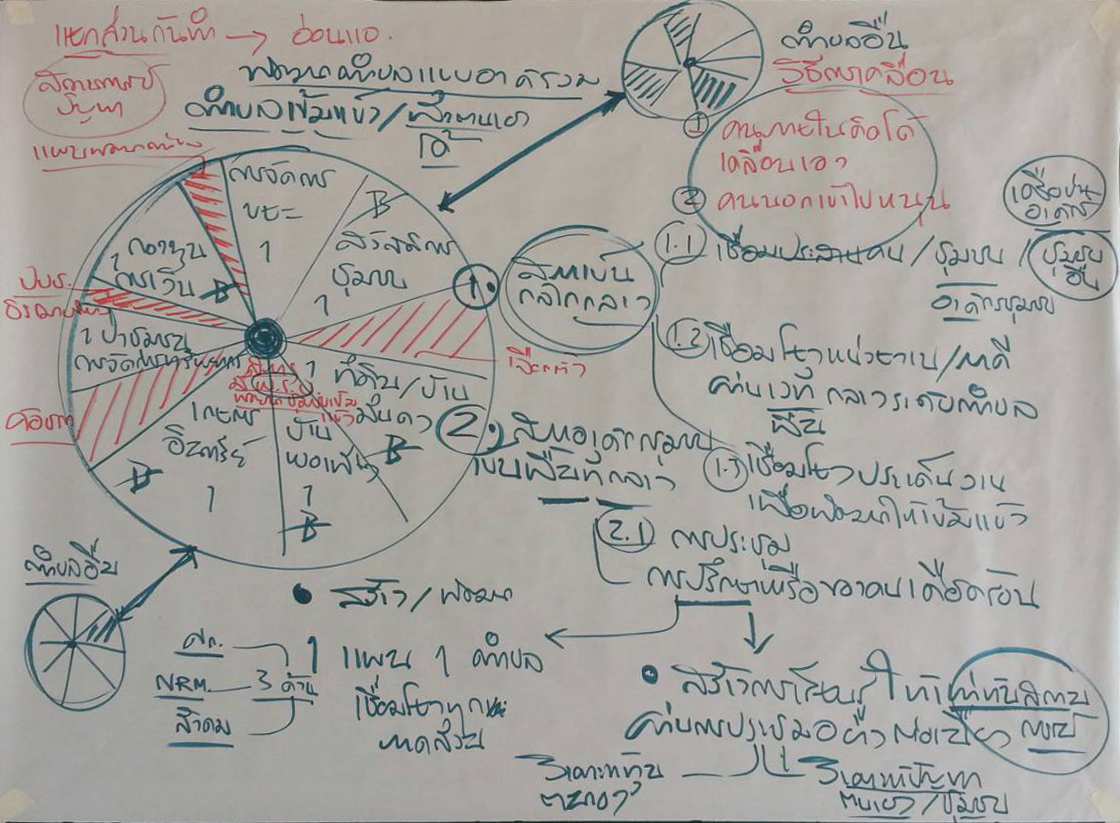 แยกส่วนกันทำ → อ่อนแอ
สถานการณ์
ปัญหา
แผนพัฒนา
พัฒนาตำบลแบบองค์รวม
ตำบลเข้มแข็ง/พึ่งตนเอง
ได้
ตำบลอื่น
วิธีการเคลื่อน
① คนภายในต้อง
เคลื่อนเอง
② คนนอกเข้าไปหนุน
เครือข่าย
การจัดการ
ขยะ
1
B
สวัสดิการ
ชุมชน
1
กองทุน
การเงิน
B
1 ป่าชุมชน
การจัดการทรัพยากร
เกษตร
อินทรีย์
1
B
บ้าน
พอเพียง
1
B
1 ที่ดิน/บ้าน
มั่นคง
B
1.
สภาเป็น
กลไกกลาง
1.1 เชื่อมประสานคน/ชุมชน/ชุมชน
อื่น
องค์กรชุมชน
1.2 เชื่อมโยงหน่วยงาน/ภาคี
ผ่านเวทีกลางระดับตำบล
1.3 เชื่อมโยงประเด็นงาน
เพื่อพัฒนาให้เข้มแข็ง
2. สภาองค์กรชุมชน
เป็นพื้นที่กลาง
2.1 การประชุม
การปรึกษาหารือของคนเดือดร้อน
ตำบลอื่น
• สร้าง/พัฒนา
1 แผน 1 ตำบล
เชื่อมโยงทุก
ภาคส่วน
ศก.
NRM. 3 ด้าน
สังคม
• สร้างการเรียนรู้ ให้เท่าทันสถาน
การณ์
ผ่านการประชุมอย่างต่อเนื่อง
วิเคราะห์ทุน
วิเคราะห์ปัญหา
ตนเอง/ชุมชน